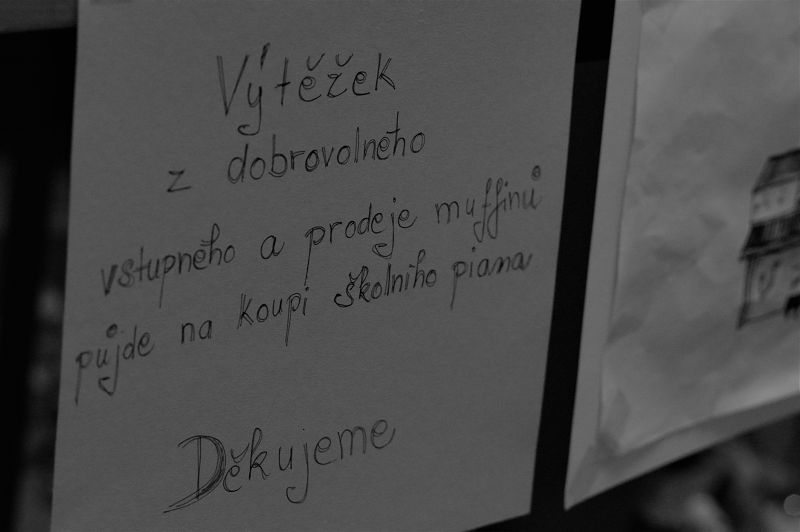 Výtěžek
z dobrovolného
vstupného a prodeje muffinů
půjde na koupi školního piana
Děkujeme